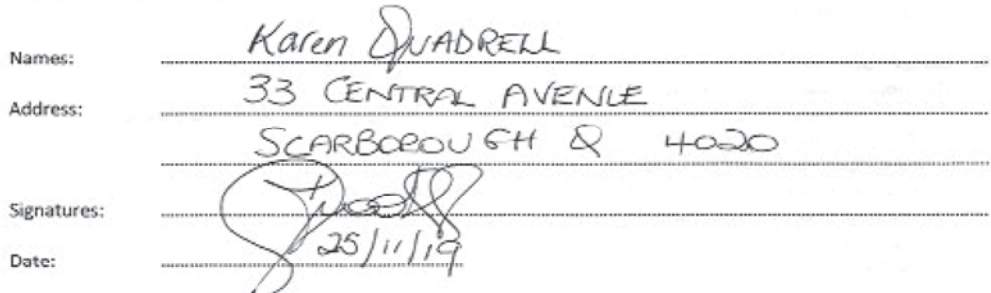 Names: Karen QUADRELL
Address: 33 CENTRAL AVENUE
SCARBOROUGH Q 4020
Signatures:
Date: 25/11/19